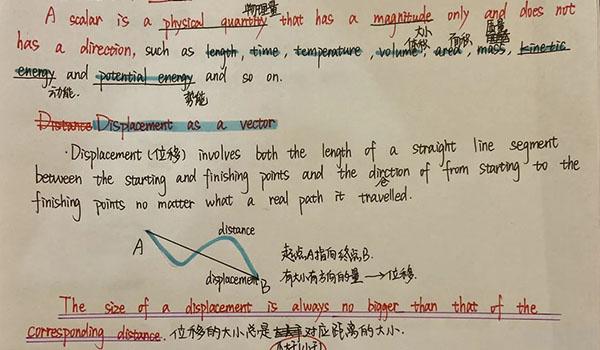 A scalar is a physical quantity that has a magnitude only and does not
物理量
大小
has a direction, such as length, time, temperature, volume, area, mass, kinetic
体积 面积 质量
energy and potential energy and so on.
动能. 势能
Distance Displacement as a vector
·Displacement (位移) involves both the length of a straight line segment
between the starting and finishing points and the dirction of from starting to the
e
finishing points no matter what a real path it travelled.
distance
A
起点A指向终点B.
displacement B
有大小有方向的量 → 位移.
The size of a displacement is always no bigger than that of the
corresponding distance. 位移的大小总是 对应距离的大小.